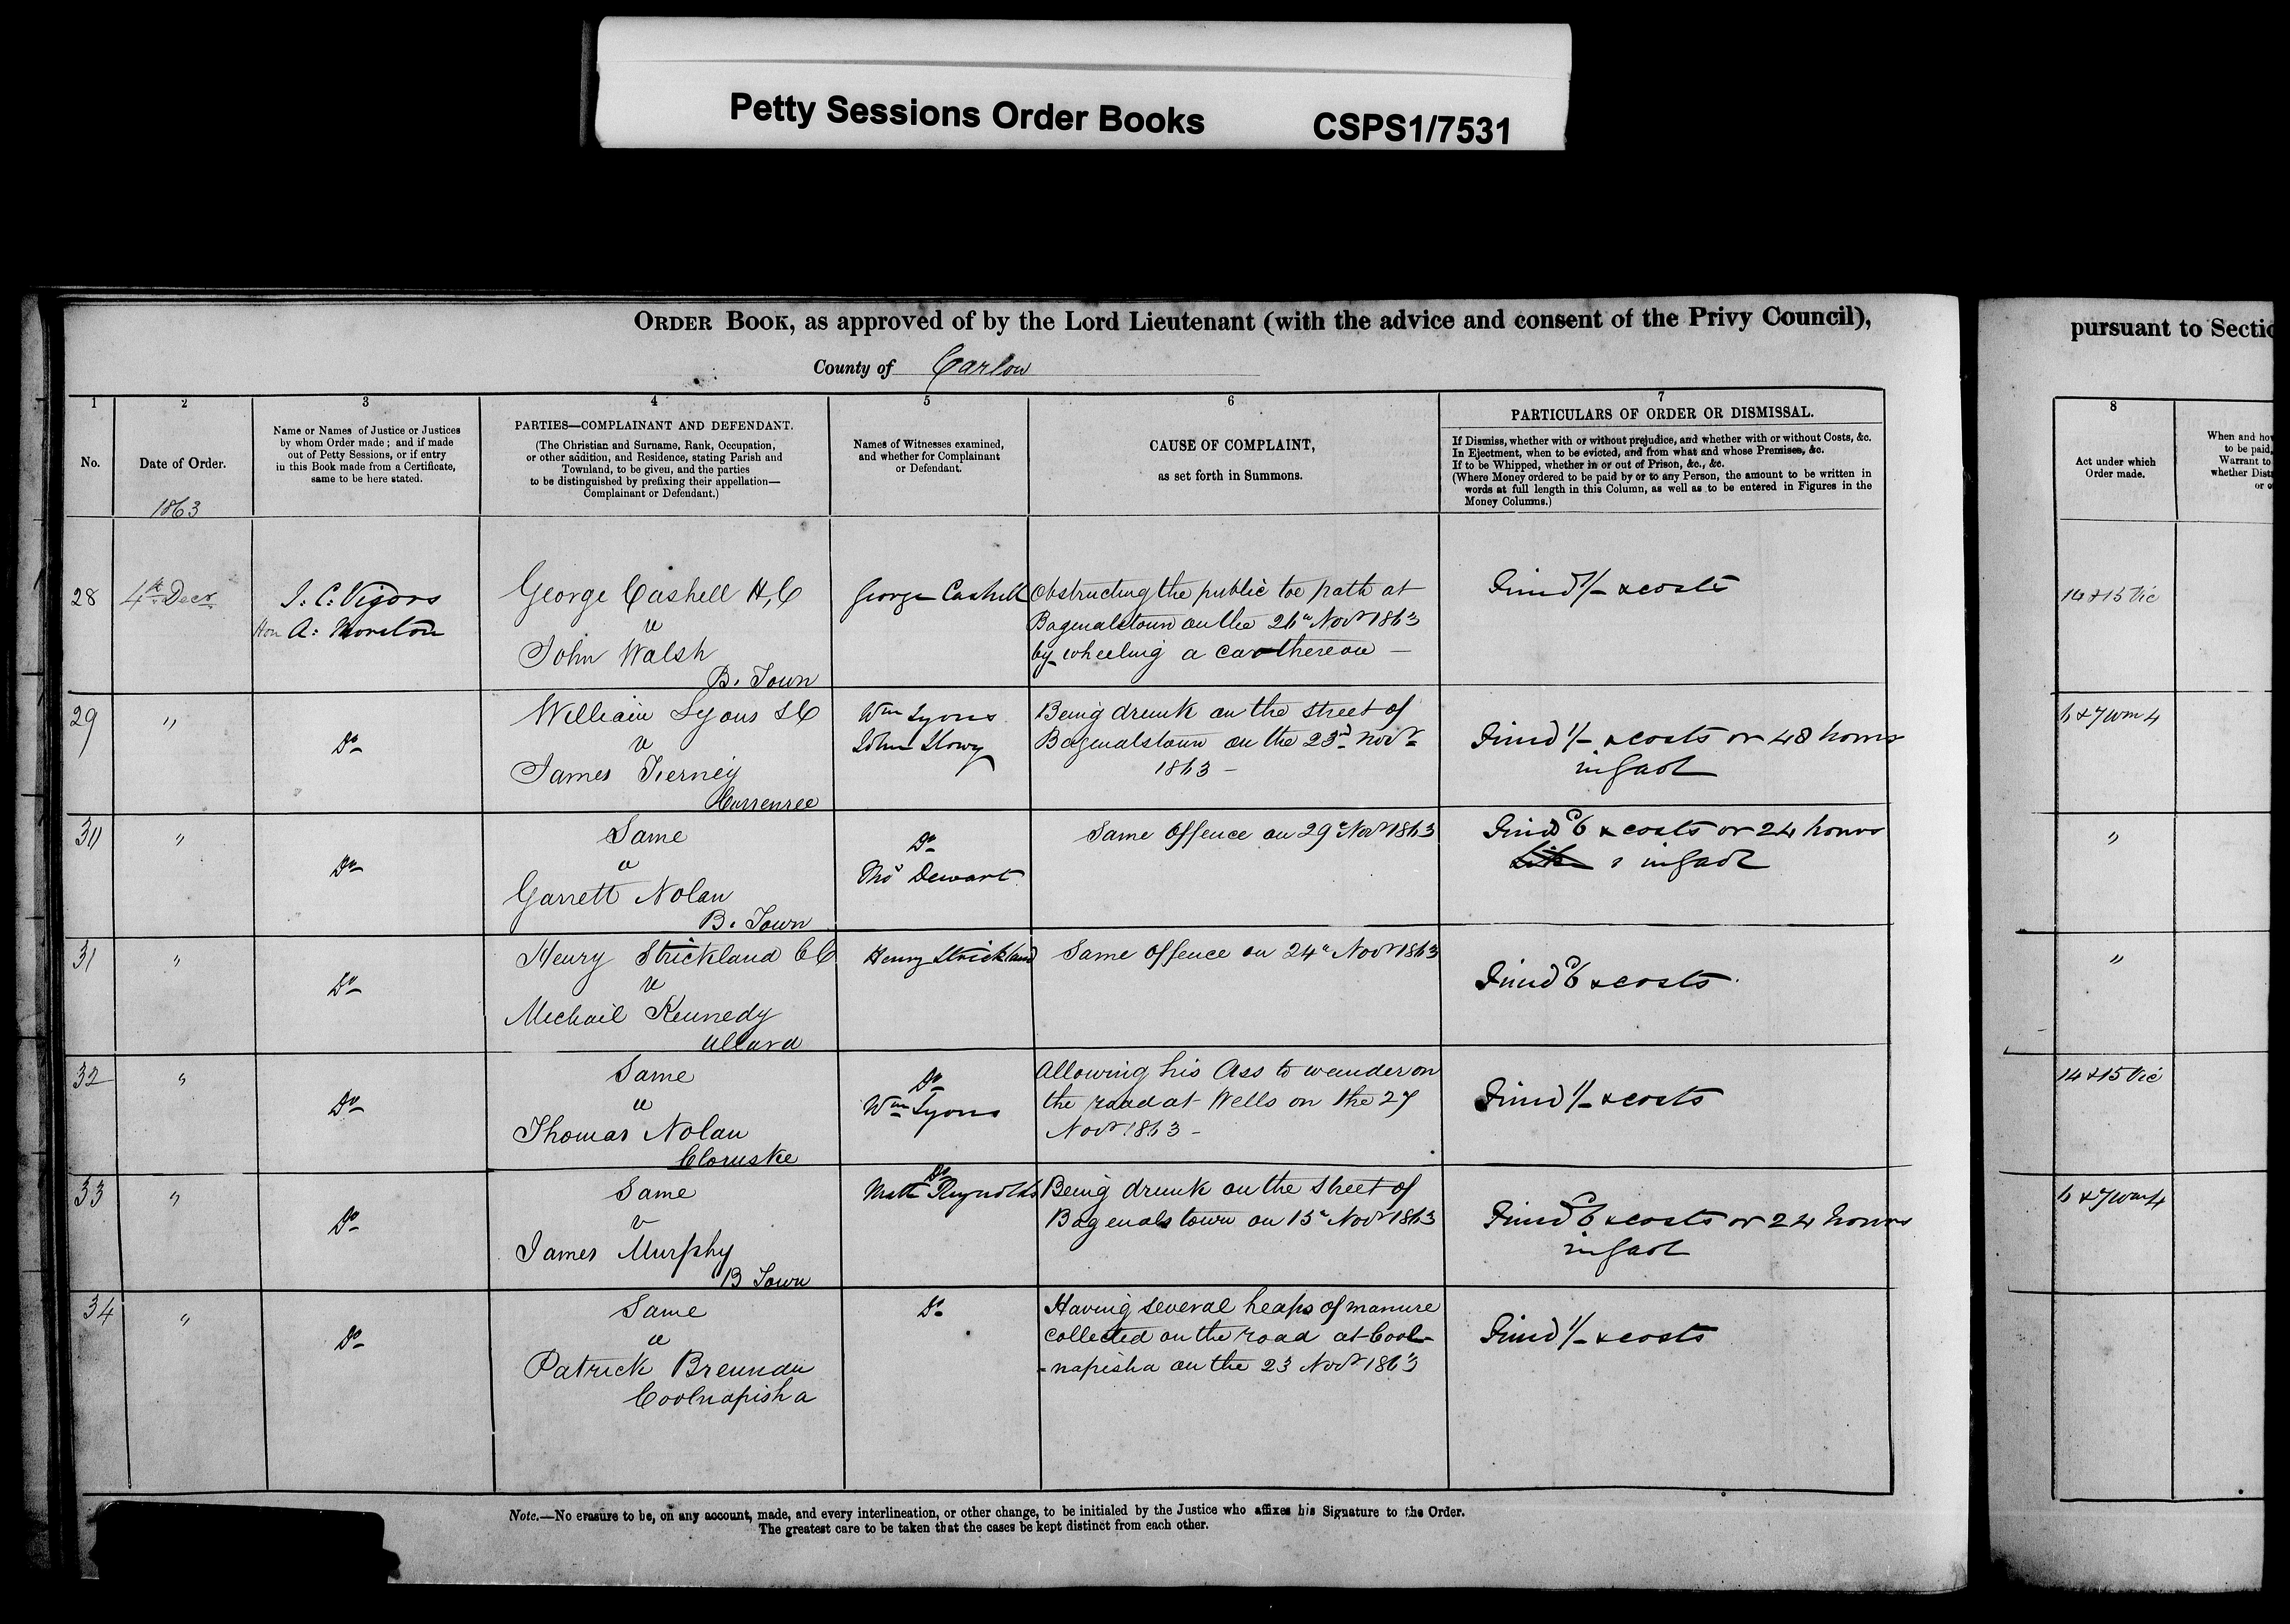 Petty Sessions Order Books CSPS1/7531
ORDER BOOK, as approved of by the Lord Lieutenant (with the advice and consent of the Privy Council),
County of Carlow
1
No.
2
Date of Order.
1863
3
Name or Names of Justice or Justices
by whom Order made; and if made
out of Petty Sessions, or if entry
in this Book made from a Certificate,
same to be here stated.
4
PARTIES—COMPLAINANT AND DEFENDANT.
(The Christian and Surname, Rank, Occupation,
or other addition, and Residence, stating Parish and
Townland, to be given, and the parties
to be distinguished by prefixing their appellation—
Complainant or Defendant.)
5
Names of Witnesses examined,
and whether for Complainant
or Defendant.
6
CAUSE OF COMPLAINT,
as set forth in Summons.
7
PARTICULARS OF ORDER OR DISMISSAL.
If Dismiss, whether with or without prejudice, and whether with or without Costs, &c.
In Ejectment, when to be evicted, and from what and whose Premises, &c.
If to be Whipped, whether in or out of Prison, &c., &c.
(Where Money ordered to be paid by or to any Person, the amount to be written in
words at full length in this Column, as well as to be entered in Figures in the
Money Columns.)
28
4th Decr
J. C. Vigors
Hon A: Moreton
George Cashell H,C
v
John Walsh
B. Town
George Cashell
Obstructing the public toe path at
Bagenalstown on the 26th Novr 1863
by wheeling a car thereon —
Fined 1/- & costs
29
"
Do
William Lyons SC
v
James Tierney
Wm Lyons
John
Being drunk on the street of
Bagenalstown on the 23d Novr
1863 -
Fined 1/- & costs or 48 hours
in Gaol
30
"
Do
Same
v
Garrett Nolan
B. Town
Do
Thos Dewart
Same Offence on 29th Novr 1863
Fined 6 & costs or 24 hours
in Gaol
31
"
Do
Henry Strickland CC
v
Michail Kennedy
Ullard
Henry Strickland
Same offence on 24th Novr 1863
Fined 6 & costs
32
"
Do
Same
v
Thomas Nolan
Cloruske
Do
Wm Lyons
Allowing his Ass to wander on
the road at Wells on the 27
Novr 1863 -
Fined 1/- & costs
33
"
Do
Same
v
James Murphy
B Town
Do
Matt Reynolds
Being drunk on the street of
Bagenalstown on 15th Novr 1863
Fined 6 & costs or 24 hours
in Gaol
34
"
Do
Same
v
Patrick Brennan
Coolnapisha
Do
Having several heaps of manure
collected on the road at Cool-
-napisha on the 23 Novr 1863
Fined 1/- & costs
Note.—No erasure to be, on any account, made, and every interlineation, or other change, to be initialed by the Justice who affixes his Signature to the Order.
The greatest care to be taken that the cases be kept distinct from each other.
pursuant to Sectio
8
Act under which
Order made.
When and ho
to be paid,
Warrant to
whether Dist
or o
14 & 15 Vic
6 & 7 Wm 4
"
"
14 & 15 Vic
6 & 7 Wm 4